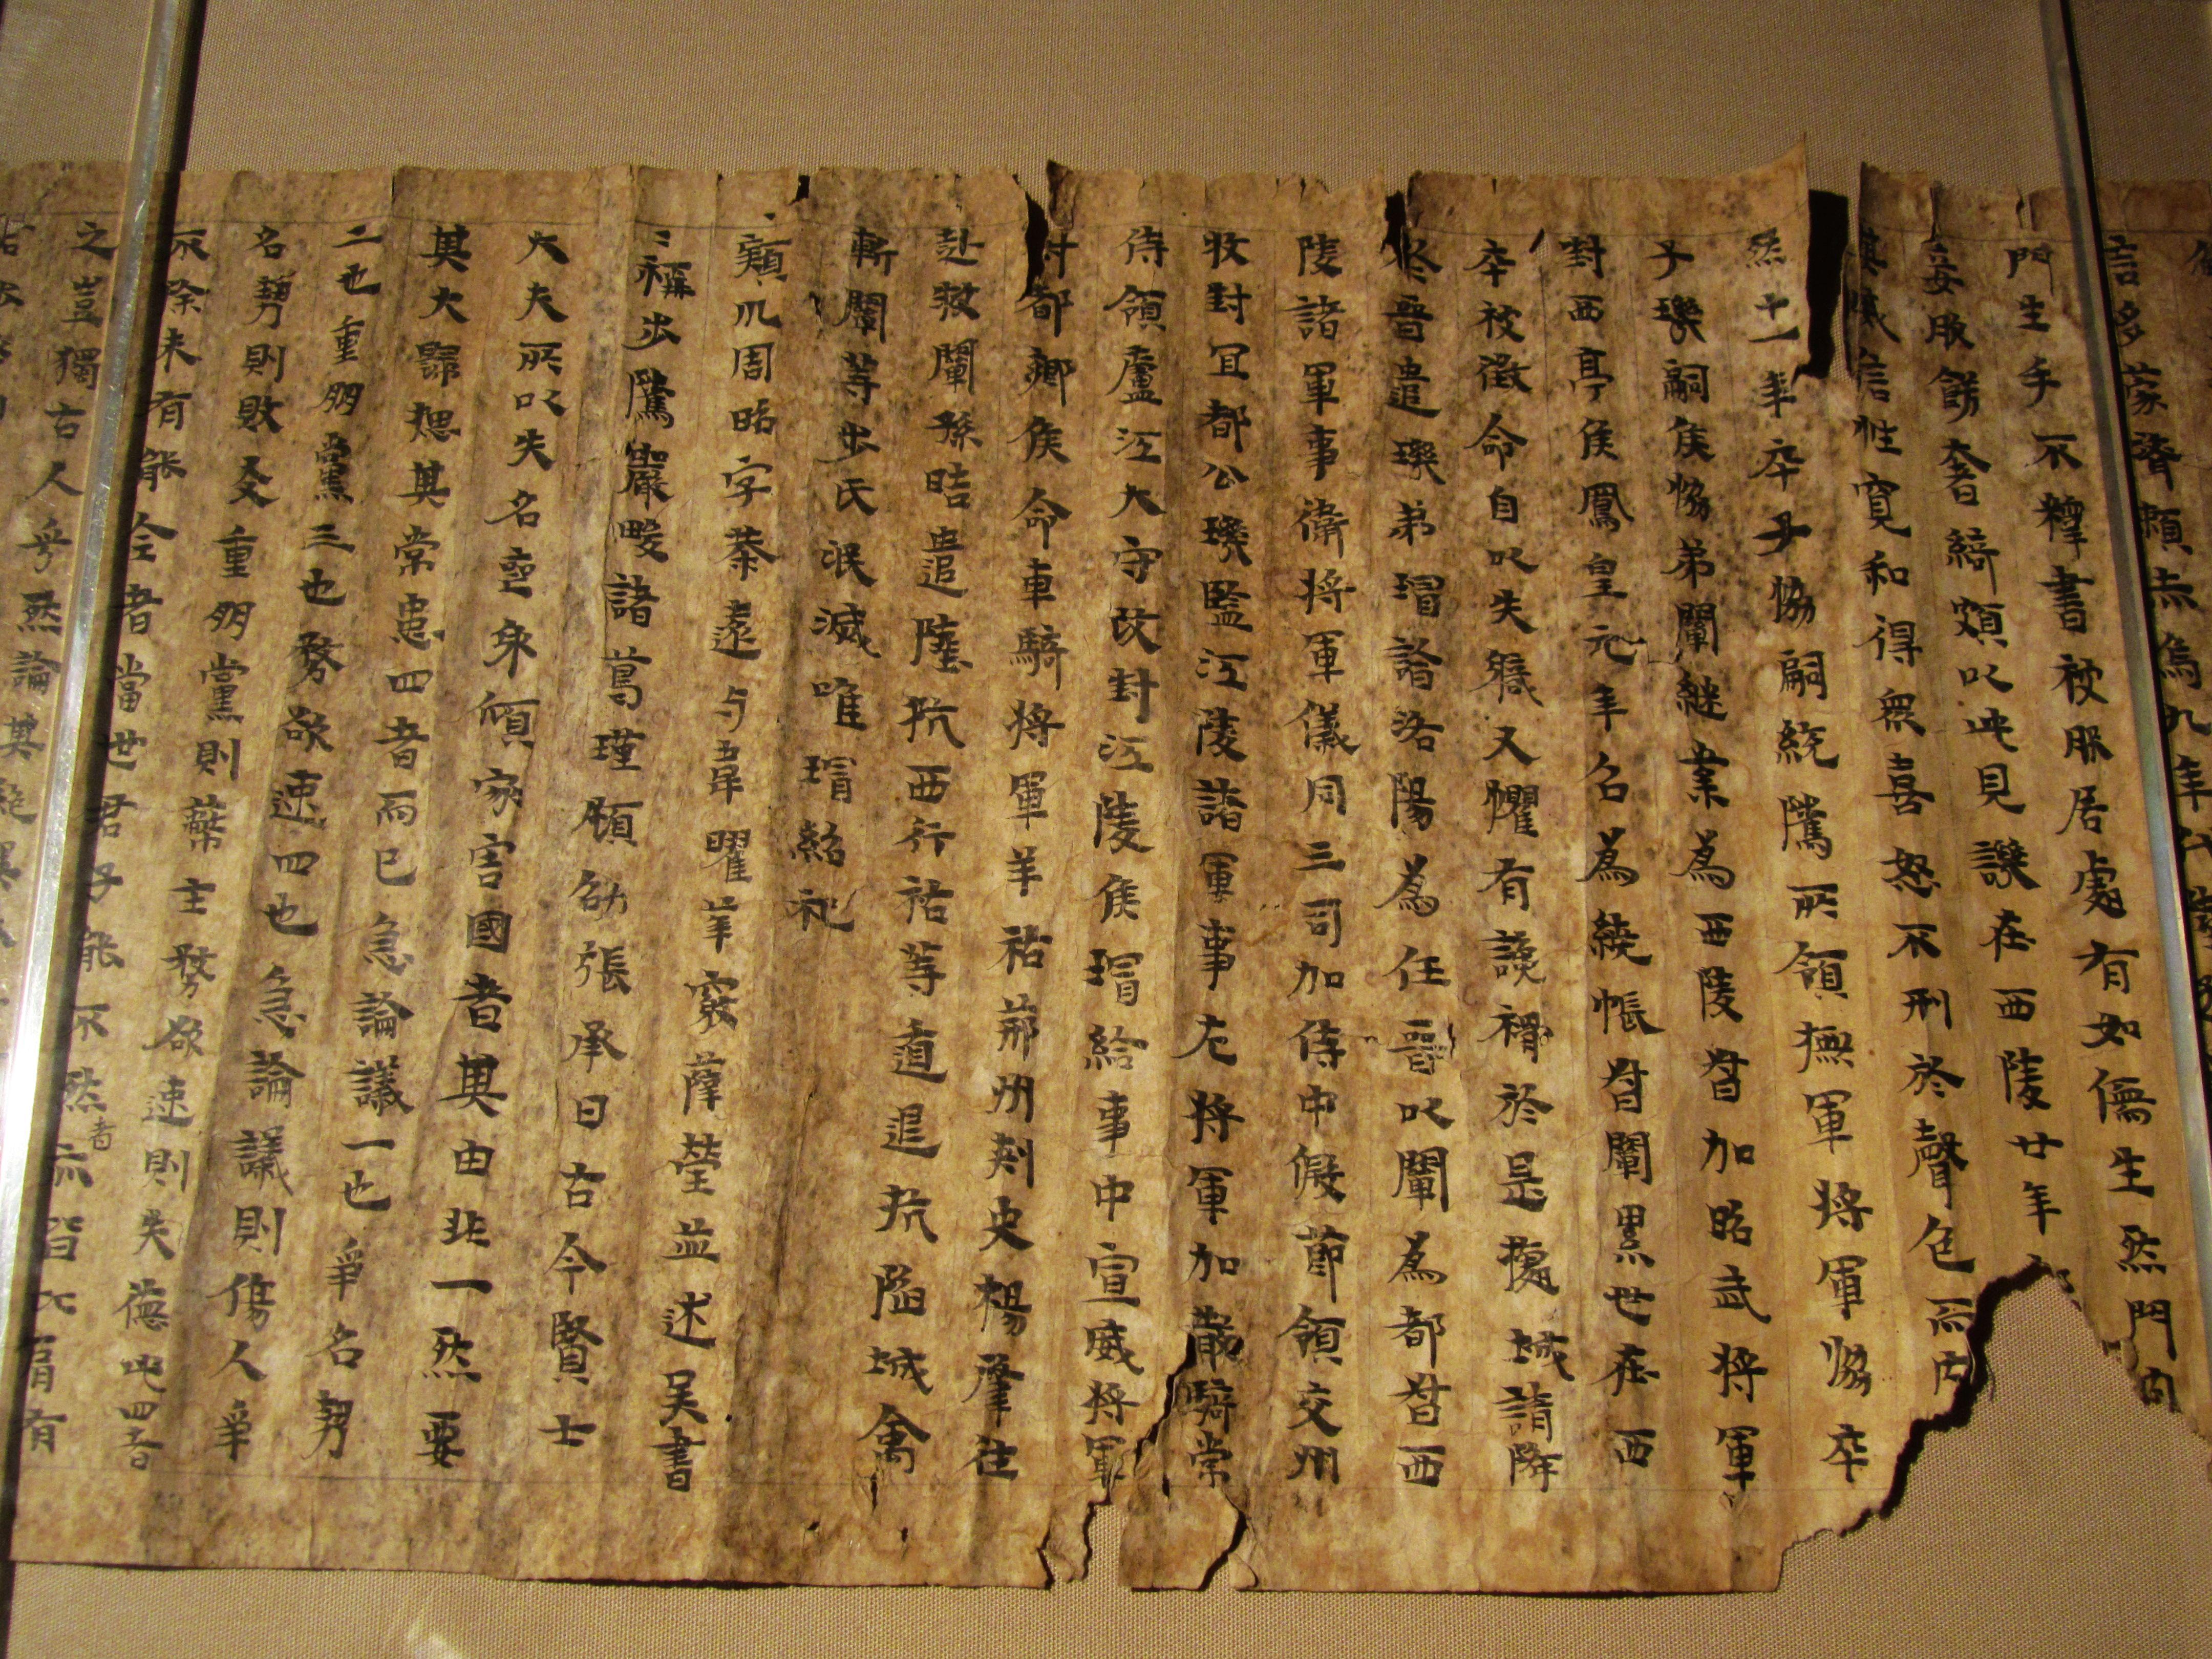 言多蒙濟頼赤烏九年代陸
門生手不釋書被服居處有如儒生然門內
妻妾服飾奢綺頗以此見譏在西陵廿年
其威信性寬和得衆喜怒不刑於聲色而內
然十一年卒子協嗣統騭所領撫軍將軍協卒
子璣嗣侯協弟闡継業為西陵督加昭武將軍
封西亭侯鳳皇元年召為繞帳督闡累世在西
卒被徵命自以失職又懼有讒禍於是據城請降
於晉遣璣弟璿詣洛陽為任晉以闡為都督西
陵諸軍事衛將軍儀同三司加侍中假節領交州
牧封冝都公璣監江陵諸軍事左將軍加散騎常
侍領廬江大守改封江陵侯璿給事中宣威將軍
封都鄉侯命車騎將軍羊祜荊州刺史楊肇往
赴救闡孫晧遣陸抗西行祜等遁退抗陷城禽
斬闡等步氏泯滅唯璿紹祀
潁川周昭字恭遠与韋曜華覈薛瑩並述吳書
〻稱步騭嚴畯諸葛瑾顧劭張承曰古今賢士
大夫所以失名喪身傾家害國者其由非一然要
其大歸惣其常患四者而已急論議一也爭名勢
二也重朋黨三也務欲速四也急論議則傷人爭
名勢則敗友重朋黨則蔽主務欲速則失德此四者
不除未有能全者當世君子能不然者亦皆比肩有
之豈獨古人乎然論其絕異